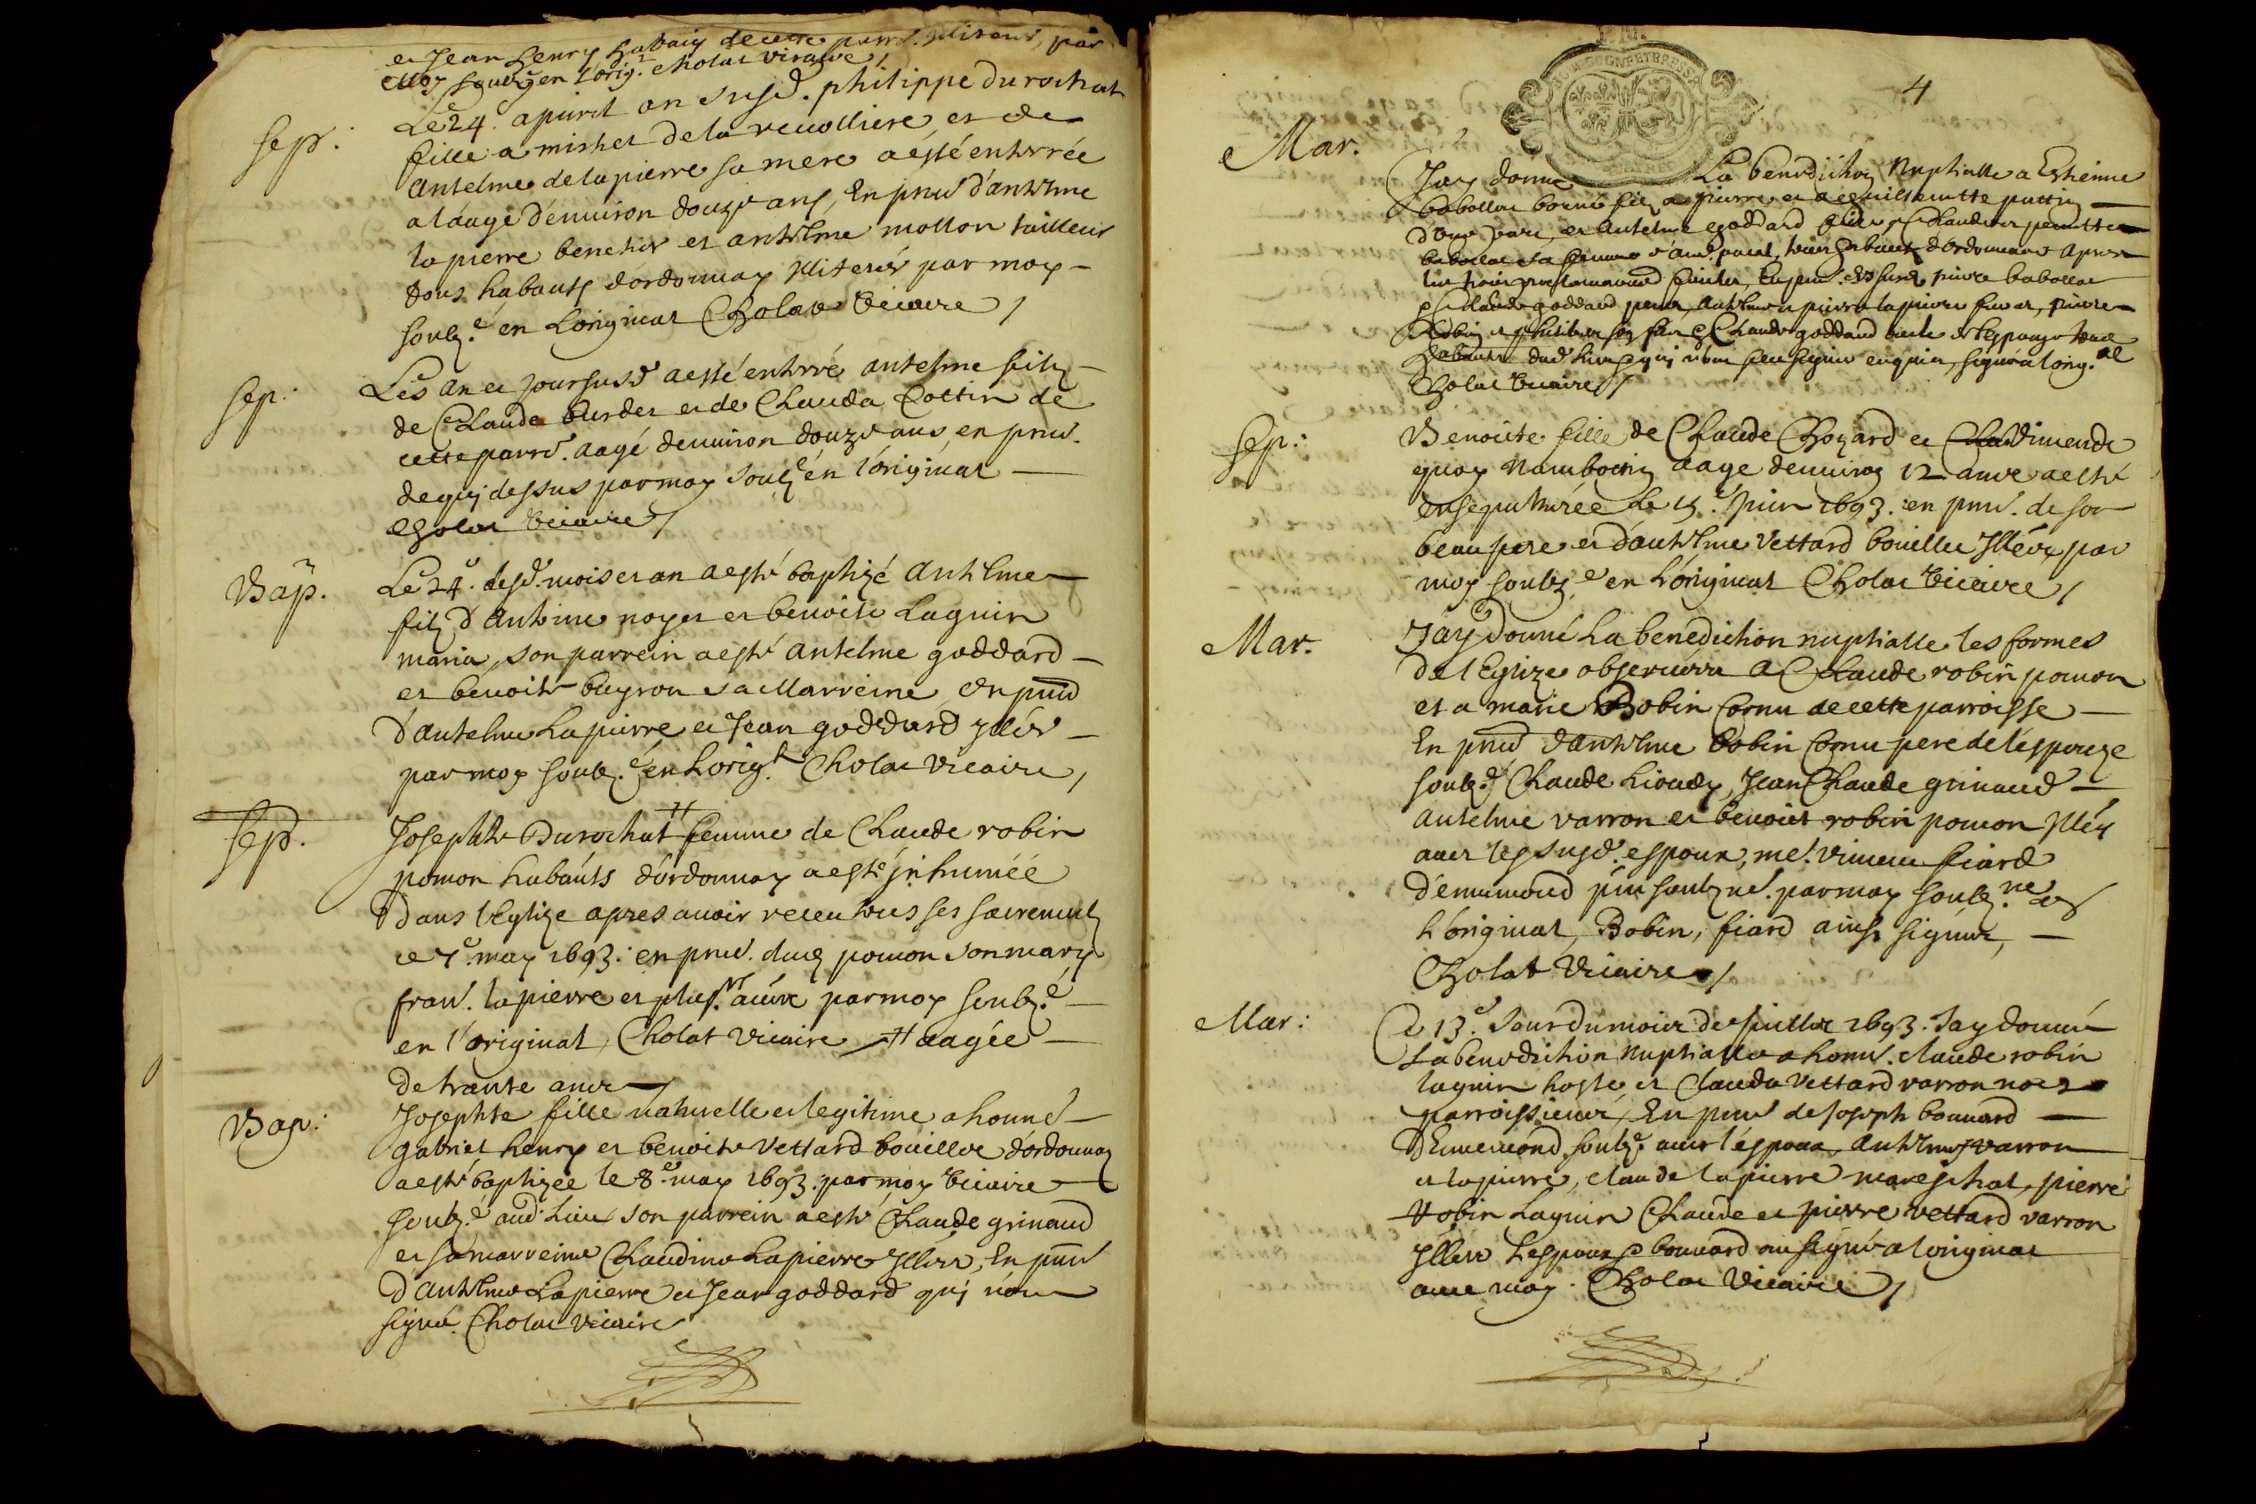 et Jean henry habañs de cette parr. illiterés, par
moy soubz.é en l'orig. Cholat vicaire /
Sep. Le 24. apuril an susd. philippe durochat
fille a michel de la revolliere et de
Antelme de la pierre sa mere a esté enterrée
a l'aage d'enuiron douze ans, En pnce d'antelme
lapierre benetier et antelme mollon tailleur
tous habants dordonnay illiterés par moy
soubz.é en l'original Cholat vicaire /
Sep. Les an et jour susd. a esté enterré antelme filz
de Claude burdet et de Clauda Cottin de
cette parr. aagé denuiron douze ans en pnce.
de qui dessus par moy soubz.é en l'original
Cholat vicaire /
Bap. Le 24.e desd. mois et an a esté baptizé Antelme
filz d'Antoine noyer et benoite Laguin
maria, son parrein a esté antelme goddard
et benoite buyron sa Marreine, en pnce
d'antelme Lapierre et Jean goddard illés
par moy soubz.é en Lorig.l Cholat vicaire,
Sep. Josephte Durochat # femme de Claude robin
pomon habants d'ordonnay a esté inhumée
Dans l'Eglize apres auoir receu tous ses sacrements
ce 7.e may 1693. en pnce. dud pomon son mary
fran. lapierre et plus.rs autre par moy soubz.é
en l'original, Cholat vicaire # aagée
de trante ans
Bap: Josephte fille naturelle et legitime a honne
gabriel henry et benoite vettard bouillet d'ordonnay
a esté baptizée le 8.e may 1693. par moy vicaire
soubz.é aud. Lieu son parrein a esté Claude grinand
et sa marreine Claudine Lapierre illés, En pnce
D'Antelme Lapierre et Jean goddard qui n'ont
signé. Cholat vicaire
4
Mar. J'ay donné La benediction Nuptialle a Estienne
babollat filz a pierre et a guillemette
d'une part, et Antelme goddard fille a Claude et pernette
babollat sa femme d'aud. part, tous habants d'ordonnay apres
les trois proclamations faites, En pnce pierre baboillat
Claude goddard pere, Antelme et pierre lapierre freres, pierre
Robin et son filz Claude goddard oncle de l'espouze tous
habants dud lieu qui n'ont sceu signer enquis, signé a l'orig.al
Cholat vicaire /
Sep: Benoite fille de Claude Choyard et Claudine
quay aage denuiron 12 ans a esté
ensepulturée Le 15.e Juin 1693. en pnce. de son
beau pere et d'antelme Vettard bouillet illés, par
moy soubz.é en l'original Cholat vicaire /
Mar. J'ay donné La benediction nuptialle les formes
de l'Eglize obseruées a Claude robin pomon
et a marie Bobin Cornu de cette parroisse
En pnce d'antelme bobin Cornu pere de l'espouze
soubz.é Claude Jean Claude grinand
antelme varron et benoit robin pomon illés
auec les susd. espoux, me. vincent fiard
d'emmemond soubz.né par moy soubz.né
L'original, Bobin, fiard ainsi signés,
Cholat Vicaire /
Mar: Ce 13.e Jour du mois de Juillet 1693. J'ay donné
La benediction Nuptialle a honn. claude robin
laguin hoste et Clauda Vettard varron nos
parroissiens, En pnce de Joseph bonnard
d'Emmemond soubz.é auec l'espoux, Antelme varron
et lapierre, claude lapierre mareschal, pierre
Robin Laguin Claude et pierre vettard varron
illés L'espoux et bonnard ont signé a l'original
auec moy. Cholat Vicaire /